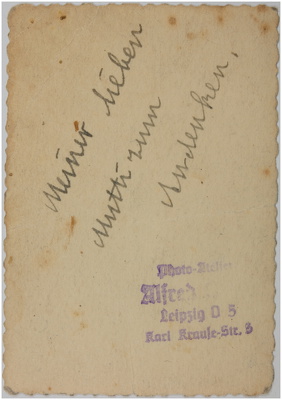 Meiner lieben
Mutti zum
Andenken,
Photo-Atelier
Alfred
Leipzig O 5
Karl Krause-Str. 3